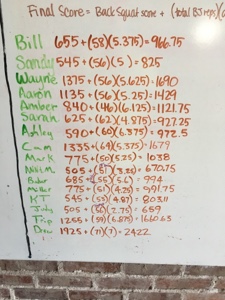 Final Score = Back Squat score + (total BJ reps)(
Bill 655+(58)(5.375)=966.75
Sandy 545+(56)(5)=825
Wayne 1375+(56)(5.625)=1690
Aaron 1135+(56)(5.25)=1429
Amber 840+(46)(6.125)=1121.75
Sarah 625+(62)(4.875)=927.25
Ashley 590+(60)(6.375)=972.5
Cam 1335+(54)(6.375)=1679
Mark 775+(50)(5.25)=1038
505+(51)(3.25)=670.75
685+(55)(5.6)=994
775+(51)(4.25)=991.75
KT 545+(53)(4.87)=803.11
Judy 505+(56)(2.75)=659
Trip 1255+(59)(6.875)=1660.63
Drew 1925+(71)(7)=2422